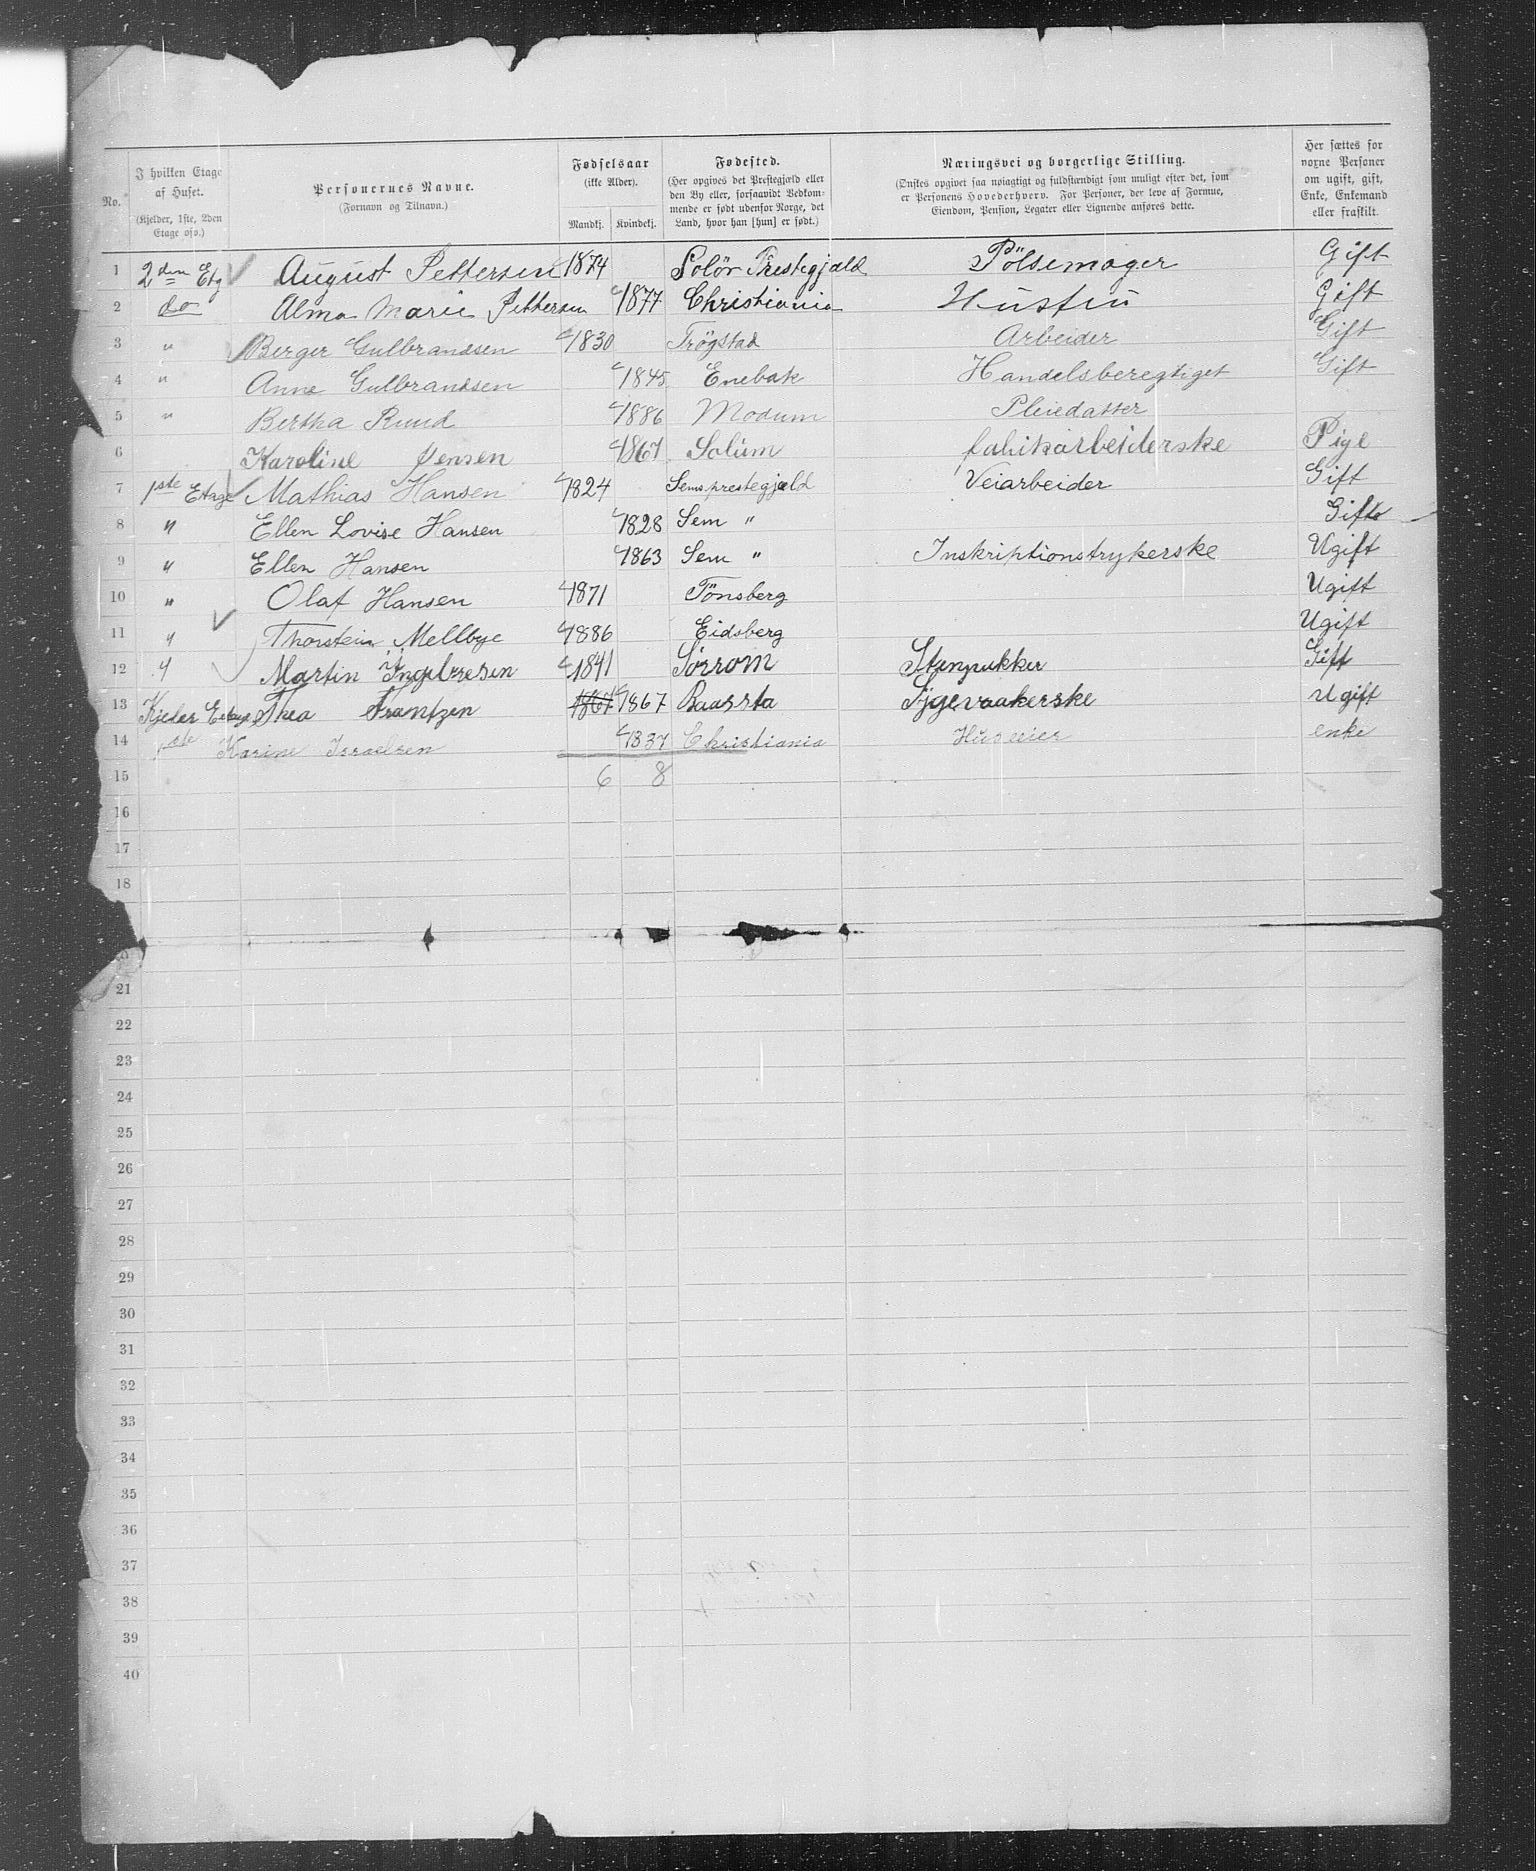 No. | I hvilken Etage af Huset. (Kjelder, 1ste, 2den Etage osv.) | Personernes Navne. (Fornavn og Tilnavn.) | Fødselsaar (ikke Alder). Mandkj. | Kvindekj. | Fødested. (Her opgives det Prestegjæld eller den By eller, forsaavidt Vedkommende er født udenfor Norge, det Land, hvor han [hun] er født.) | Næringsvei og borgerlige Stilling. (Ønskes opgivet saa nøiagtigt og fuldstændigt som muligt efter det, som er Personens Hovederhverv. For Personer, der leve af Formue, Eiendom, Pension, Legater eller Lignende anføres dette. | Her sættes for voxne Personer om ugift, gift, Enke, Enkemand eller fraskilt.
1 | 2den Etg | August Pettersen | 1874 | | Solör Prestegjæld | Pölsemager | Gift
2 | do | Alma Marie Pettersen | | 1877 | Christiania | Hustru | Gift
3 | " | Berger Gulbrandsen | 1830 | | Trögstad | Arbeider | Gift
4 | " | Anne Gulbrandsen | | 1845 | Enebak | Handelsberegtiget | Gift
5 | " | Bertha Ruud | | 1886 | Modum | Pleiedatter
6 | | Karoline Jensen | | 1867 | Solum | fabrikarbeiderske | Pige
7 | 1ste Etage | Mathias Hansen | 1824 | | Sems prestegjæld | Veiarbeider | Gift
8 | " | Ellen Lovise Hansen | | 1828 | Sem " | | Gift
9 | " | Ellen Hansen | | 1863 | Sem " | Inskriptionstrykerske | Ugift
10 | " | Olaf Hansen | 1871 | | Tönsberg | | Ugift
11 | " | Thorstein Mellbye | 1886 | | Eidsberg | | Ugift
12 | " | Martin Ingebresen | 1841 | | Sörrom | Stenpukker | Gift
13 | Kjeler Etage | Thea Frantzen | 1867 | 1867 | Baassta | Sygevaakerske | Ugift
14 | 1ste | Karine Israelsen | | 1837 | Christiania | Huseeier | enke
15 | | | 6 | 8
16
17
18
21
22
23
24
25
26
27
28
29
30
31
32
33
34
35
36
37
38
39
40